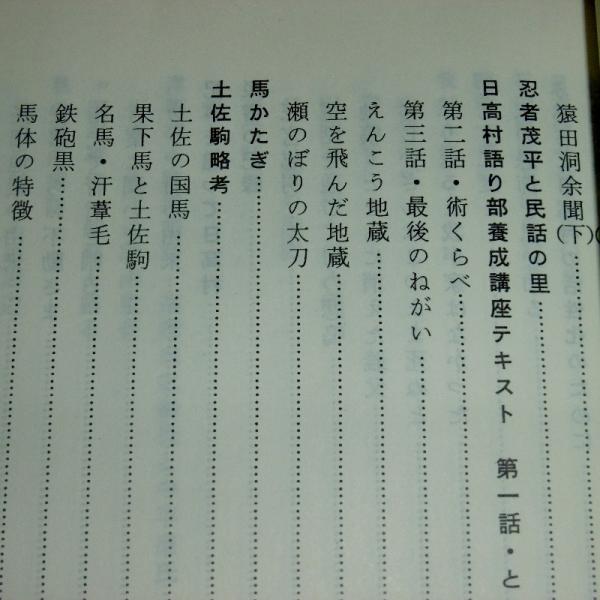 猿田洞余聞(下)
忍者茂平と民話の里
日高村語り部養成講座テキスト 第一話・と
第二話・術くらべ
第三話・最後のねがい
えんこう地蔵
空を飛んだ地蔵
瀬のぼりの太刀
馬かたぎ
土佐駒略考
土佐の国馬
果下馬と土佐駒
名馬・汗葦毛
鉄砲黒
馬体の特徴